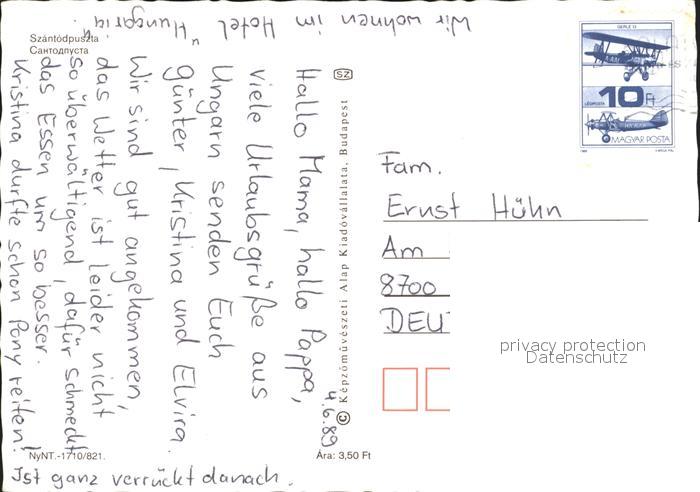 Szántódpuszta
Сантодпуста
4.6.89
Hallo Mama, hallo Pappa,
viele Urlaubsgrüße aus
Ungarn senden Euch
Günter, Kristina und Elvira.
Wir sind gut angekommen,
das Wetter ist leider nicht
so überwältigend, dafür schmeckt
das Essen um so besser.
Kristina durfte schon Pony reiten!
Ist ganz verrückt danach.
Wir wohnen im Hotel "Hungaria".
NyNT.-1710/821.
Ára: 3,50 Ft
SZ
© Képzőművészeti Alap Kiadóvállalata, Budapest
GERLE 13
LÉGIPOSTA
10 Ft
MAGYAR POSTA
Fam.
Ernst Hühn
Am
8700
DEU
privacy protection
Datenschutz